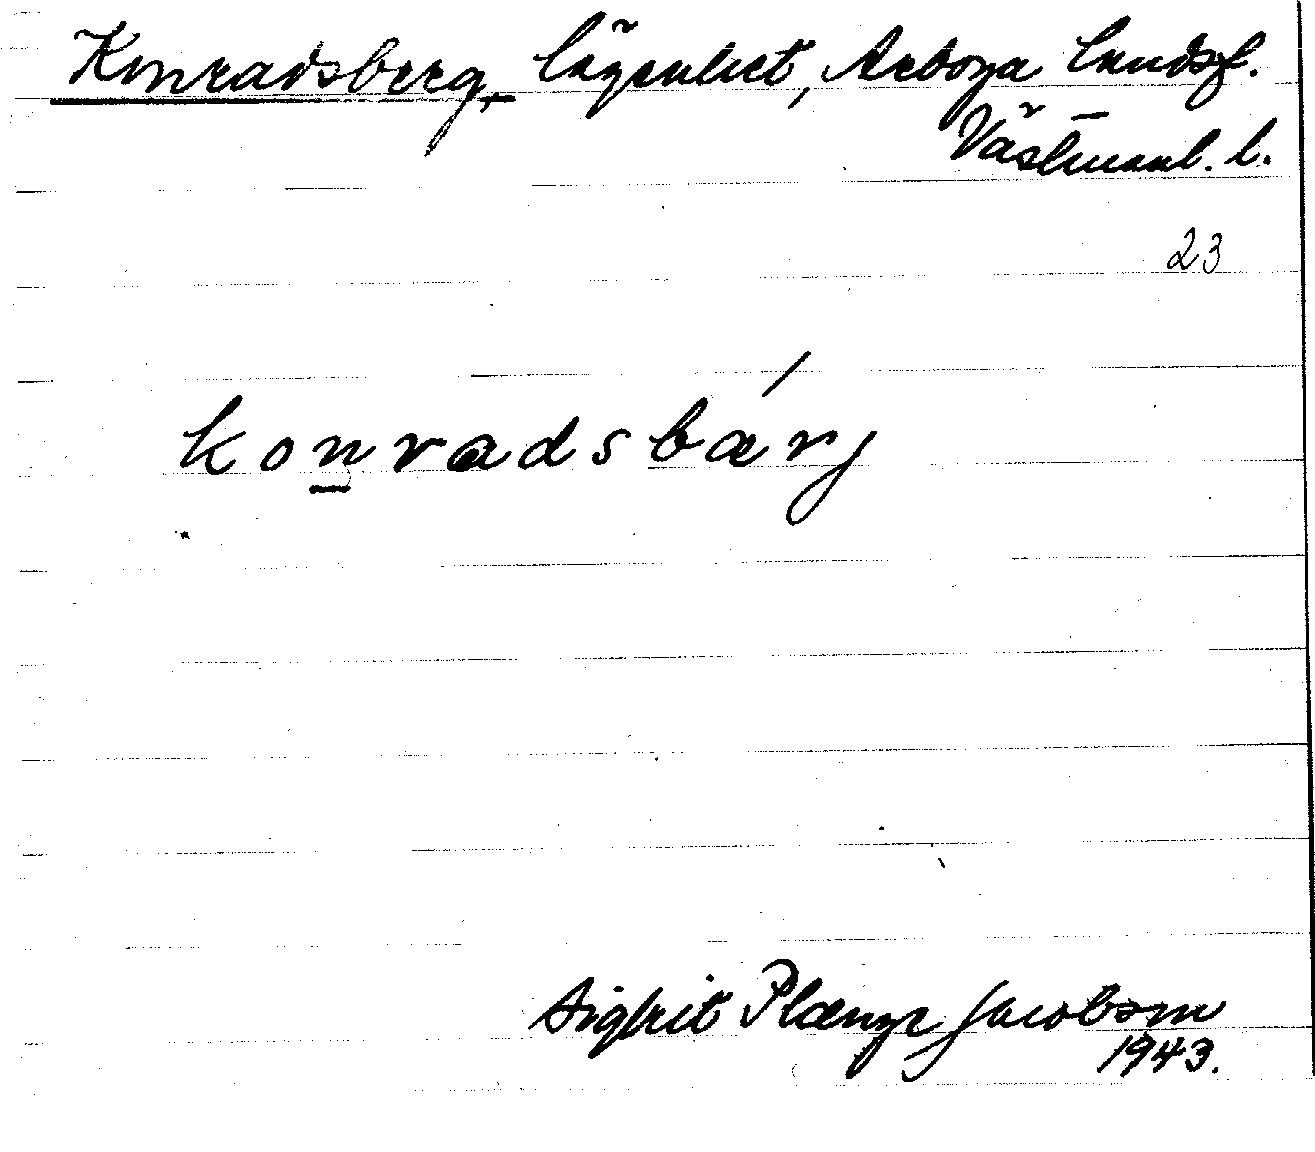 Konradsberg, lägenhet, Arboga landsf.
Västmanl. l.
23
konradsbærj
Sigfrit Plænge Jacobson
1943.